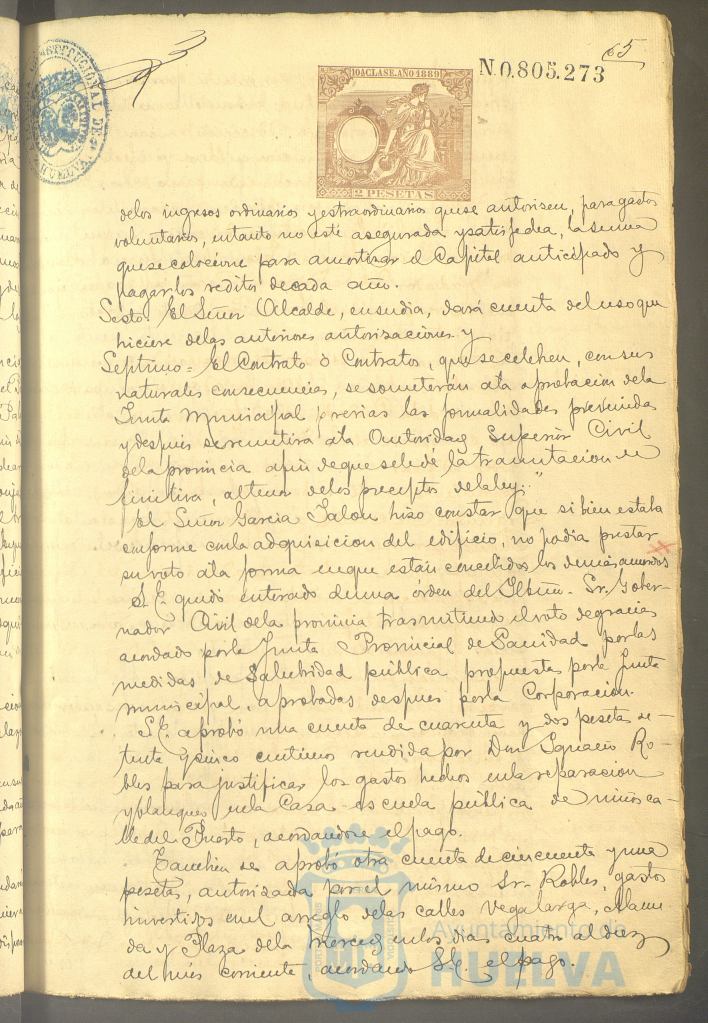 65
10A CLASE. AÑO 1889
N.0.805.273
2 PESETAS
CONSTITUCIONAL DE HUELVA
delos ingresos ordinarios y estraordinarios quese autorisen, para gastos
voluntarios, entanto no esté asegurada y satisfecha, la suma
quese colocione para amortizar el Capital anticipado y
pagar los reditos decada año.
Sesto. El Señor Alcalde, ensudia, dará cuenta del uso que
hiciere delas anteriores autorizaciones. y
Septimo = El Contrato ó Contratos, que se celebren, con sus
naturales consecuencias, se someterán ala aprobacion dela
Junta Municipal previas las formalidades prevenidas
y despues se remitirá ala Autoridad Superior Civil
dela provincia afin de que sele dé la tramitacion de
finitiva, altenor delos preceptos dela ley."
El Señor Garcia Jalon hizo constar que si bien estaba
conforme conla adquisicion del edificio, no podia prestar
su voto ala forma enque estan concebidos los demas acuerdos
S.E. quedó enterado deuna órden del Iltmo. Sr. Gober-
nador Civil dela provincia trasmitiendo el voto de gracias
acordado porla Junta Provincial de Sanidad porlas
medidas de Salubridad pública propuestas porla Junta
municipal, aprobadas despues porla Corporacion.
S.E. aprobó una cuenta de cuarenta y dos pesetas se-
tenta y cinco centimos rendida por Don Ignacio Ro-
bles para justificar los gastos hechos enla reparacion
y blanqueo enla Casa-escuela pública de niños ca-
lle del Puerto, acordandose el pago.
Tambien se aprobó otra cuenta de cincuenta y una
pesetas, autorizada por el mismo Sr. Robles, gastos
invertidos enel arreglo delas calles Vegalarga, Alame-
da y Plaza dela Merced enlos dias cuatro al diez
del mes corriente acordando S.E. el pago.
Ayuntamiento de
HUELVA